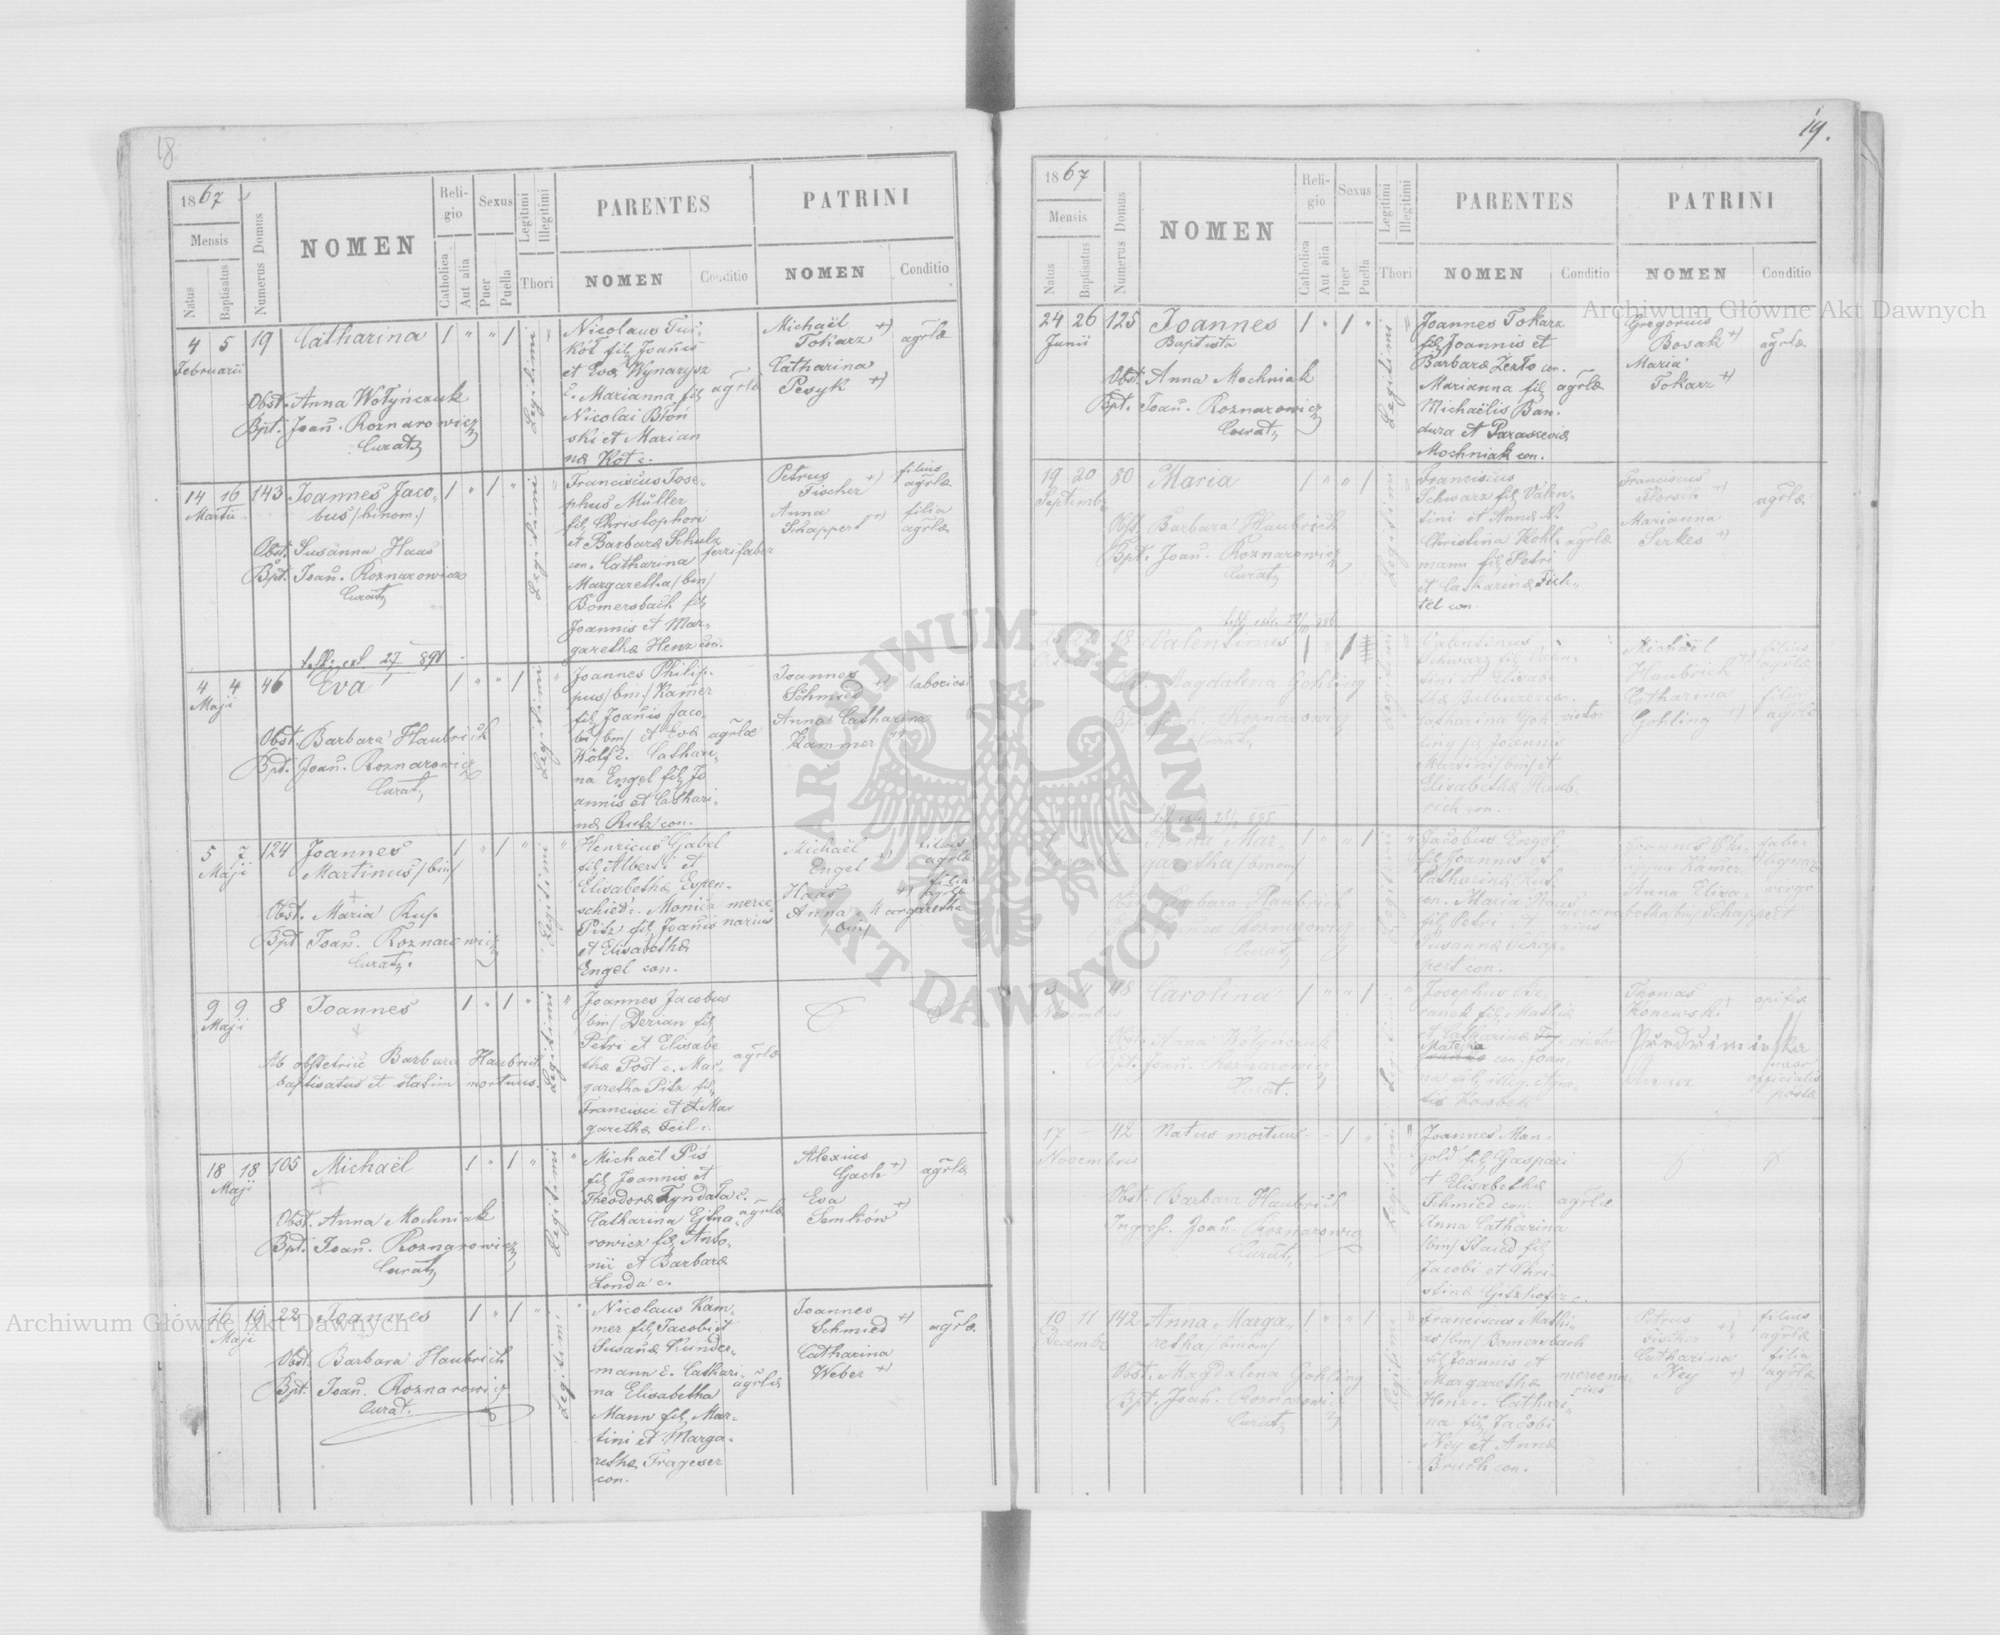 18
1867
Mensis
Natus
Baptisatus
Numerus Domus
NOMEN
Religio
Catholica
Aut alia
Sexus
Puer
Puella
Legitimi
Illegitimi
Thori
PARENTES
NOMEN
Conditio
PATRINI
NOMEN
Conditio
4 5 19 Catharina 1 " " 1
Februarii
Obst. Anna Wołyńczuk
Bpt. Joañ. Roznarowicz
Curatg
Legitimi
Nicolaus
Kót filg Joañis
et Eva Wynarysz
c. Marianna filg
Nicolai Błoń
ski et Marian
næ Kot c.
agrlæ
Michaël
Tokarz +)
Catharina
Pesyk +)
agrlæ
14 16 143 Joannes Jaco-
Martii
bus /binom./
1 " 1 "
Obst. Susanna Haas
Bpt. Joañ. Roznarowicz
Curatg
Legitimi
Franciscus Jose-
phus Müller
filg Christophori
et Barbaræ Schulz
con. Catharina
Margaretha /bin/
Bomersbach filg
Joannis et Mar-
garethæ Henz con.
ferrifaber
Petrus
Fischer +)
Anna
Schappert +)
filius
agrlæ
filia
agrlæ
4 4 46 Eva 1 " " 1
Maji
Obst. Barbara Haubrich
Bpt. Joañ. Roznarowicz
Curatg
Legitimi
Joannes Philip-
pus /bin/ Kamer
filg Joañis Jaco-
bi /bin/ et Eva
Wolf c. Cathari-
na Engel filg Jo
annis et Cathari-
næ Rutz con.
agrlæ
Joannes
Schmied +)
Anna Catharina
Kammer +)
laborios
5 7 124 Joannes 1 " 1 "
Maji
Martinus /bin/
Obst. Maria Kup
Bpt Joañ. Roznarowicz
Curatg.
Legitimi
Henricus Gabel
filg Alberti et
Elisabethæ Espen-
schied c. Monica
Pitz filg Joañis
et Elisabethæ
Engel con.
merce
narius
Michaël
Engel +)
Haas +)
Anna Margaretha
/bin/
filius
agrlæ
filia
agrlæ
9 9 8 Joannes 1 " 1 "
Maji
Ab obstetrice Barbara Haubrich
baptisatus et statim mortuus.
Legitimi
Joannes Jacobus
/bin/ Derian filg
Petri et Elisabe
thæ Post c. Mar-
garetha Pitz filg
Francisci et Mar
garethæ Feil c.
agrlæ
18 18 105 Michaël 1 " 1 "
Maji
Obst. Anna Mochniak
Bpt. Joañ. Roznarowicz
Curatg
Legitimi
Michaël Piś
filg Joannis et
Theodoræ Tyndała c.
Catharina Ejsna-
rowicz filg Anto-
nii et Barbaræ
Londa c.
agrlæ
Alexius
Gach +)
Eva
Semków +)
agrlæ
16 19 22 Joannes 1 " 1 "
Maji
Obst. Barbara Haubrich
Bpt. Joañ. Roznarowicz
Curat.
Legitimi
Nicolaus Kam-
mer filg Jacobi et
Susañæ Kunder-
mann c. Cathari-
na Elisabetha
Mann filg Mar-
tini et Marga-
rethæ Trageser
con.
agrlæ
Joannes
Schmied +)
Catharina
Weber +)
agrlæ
19.
1867
Mensis
Natus
Baptisatus
Numerus Domus
NOMEN
Religio
Catholica
Aut alia
Sexus
Puer
Puella
Legitimi
Illegitimi
Thori
PARENTES
NOMEN
Conditio
PATRINI
NOMEN
Conditio
24 26 125 Joannes 1 " 1
Junii
Baptista
Obst. Anna Mochniak
Bpt. Joañ. Roznarowicz
Curatg
Legitimi
Joannes Tokarz
filg Joannis et
Barbaræ Zexto con.
Marianna filg
Michaëlis Ban-
dura et Parasceviæ
Mochniak con.
agrlæ
Gregorius
Bosak +)
Maria
Tokarz +)
agrlæ
19 20 80 Maria 1 " " 1
Septemb
Obst. Barbara Haubrich
Bpt. Joañ. Roznarowicz
Curatg
Legitimi
Franciscus
Schwarz filg Valen-
tini et Annæ N.
Christina Kohl-
mann filg Petri
et Catharinæ Fich-
tel con.
agrlæ
Franciscus
Horsch +)
Marianna
Serkes +)
agrlæ
22 18 Valentinus 1 1
Obst. Magdalena Gohling
Bpt. Joañ. Roznarowicz
Curatg
Valentinus
Schwarz filg Valen-
tini et Elisabe-
thæ
Catharina Goh-
ling filg Joannis
Martini /bin/ et
Elisabethæ Haub-
rich con.
Michaël
Haubrich +)
Catharina
Gohling +)
filius
agrlæ
filia
agrlæ
Anna Mar- 1 " " 1
garetha /binom/
Obst. Barbara Haubrich
Joannes Roznarowicz
Curatg
Jacobus Engel
filg Joannis et
Catharinæ Rutz
con. Maria Haas
filg Petri et
Susannæ Schap-
pert con.
mercena
rius
Joannes Phi-
lippus Kamer
Anna Elisa-
betha /bin/ Schappert
faber
lignar
virgo
3 4 48 Carolina 1 " " 1
Novembris
Obst. Anna Wołyńczuk
Bpt. Joañ. Roznarowicz
Curat.
Josephus Be-
ranek filg Mathiæ
et Catharinæ
Matejka
con. Joan-
na filg illeg.
Thomas
Konewski
Pudrimińska
Anna
opifex
uxor
officialis
postæ
17 – 42 Natus mortuus – – 1 "
Novembris
Obst. Barbara Haubrich
Ingross. Joañ. Roznarowicz
Curatg
Legitimi
Joannes Man-
gold filg Gaspari
et Elisabethæ
Schmied con.
Anna Catharina
/bin/ Staud filg
Jacobi et Chri-
stinæ Gitzhofer c.
agrlæ
10 11 142 Anna Marga- 1 " " 1
Decemb
retha /binom/
Obst. Magdalena Gohling
Bpt. Joañ. Roznarowicz
Curatg
Legitimi
Franciscus Mathi-
as /bin/ Bomersbach
filg Joannis et
Margarethæ
Henz c. Cathari-
na filg Jacobi
Ney et Annæ
Bruch con.
mercena
rius
Petrus
Fischer +)
Catharina
Ney +)
filius
agrlæ
filia
agrlæ
Archiwum Główne Akt Dawnych
ARCHIWUM GŁÓWNE AKT DAWNYCH
Archiwum Główne Akt Dawnych